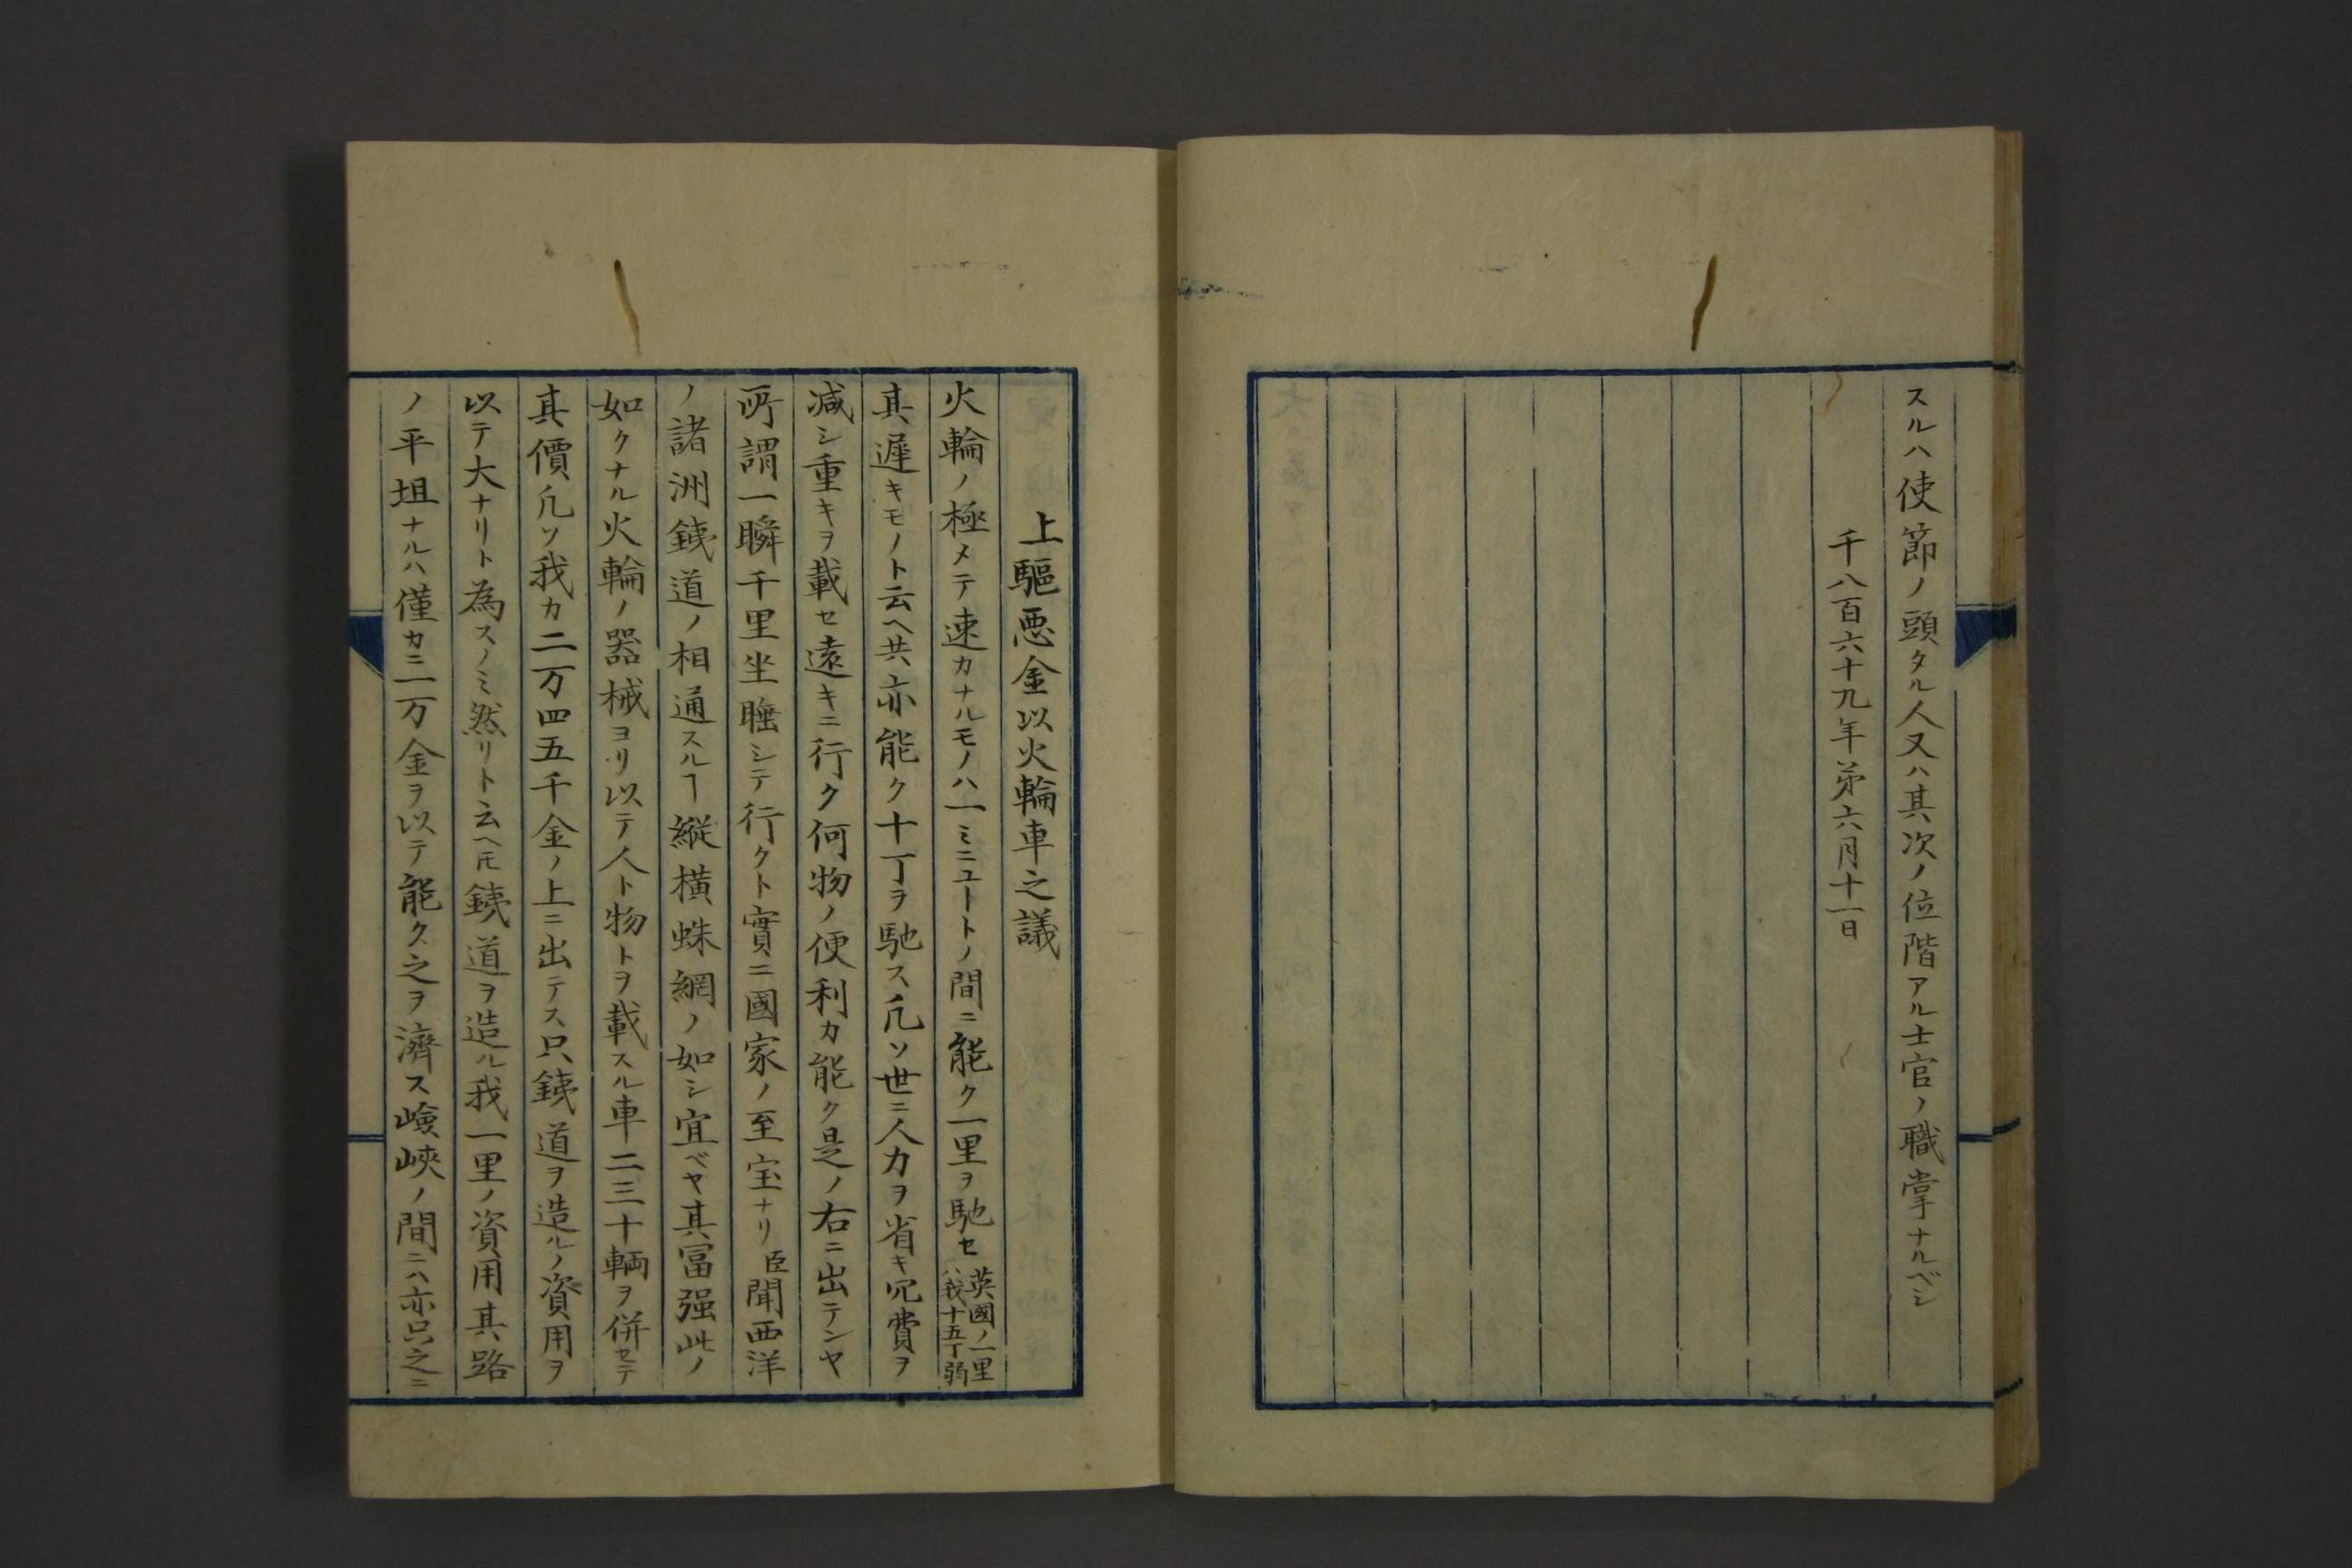 スルハ使節ノ頭タル人又ハ其次ノ位階アル士官ノ職掌ナルベシ
千八百六十九年第六月十一日
上驅悪金以火輪車之議
火輪ノ極メテ速カナルモノハ一ミニユートノ間ニ能ク一里ヲ馳セ英國ノ一里ハ我十五丁弱
其遅キモノト云ヘ共亦能ク十丁ヲ馳ス凡ソ世ニ人力ヲ省キ冗費ヲ
減シ重キヲ載セ遠キニ行ク何物ノ便利カ能ク是ノ右ニ出テンヤ
所謂一瞬千里坐睡シテ行クト實ニ國家ノ至宝ナリ臣聞西洋
ノ諸洲銕道ノ相通スルヿ縦横蛛網ノ如シ宜ベヤ其冨强此ノ
如クナル火輪ノ器械ヨリ以テ人ト物トヲ載スル車二三十輌ヲ併セテ
其價凡ソ我カ二万四五千金ノ上ニ出テス只銕道ヲ造ルノ資用ヲ
以テ大ナリト為スノミ然リト云ヘ𪜈銕道ヲ造ル我一里ノ資用其路
ノ平坦ナルハ僅カニ一万金ヲ以テ能ク之ヲ濟ス嶮峽ノ間ニハ亦只之ニ